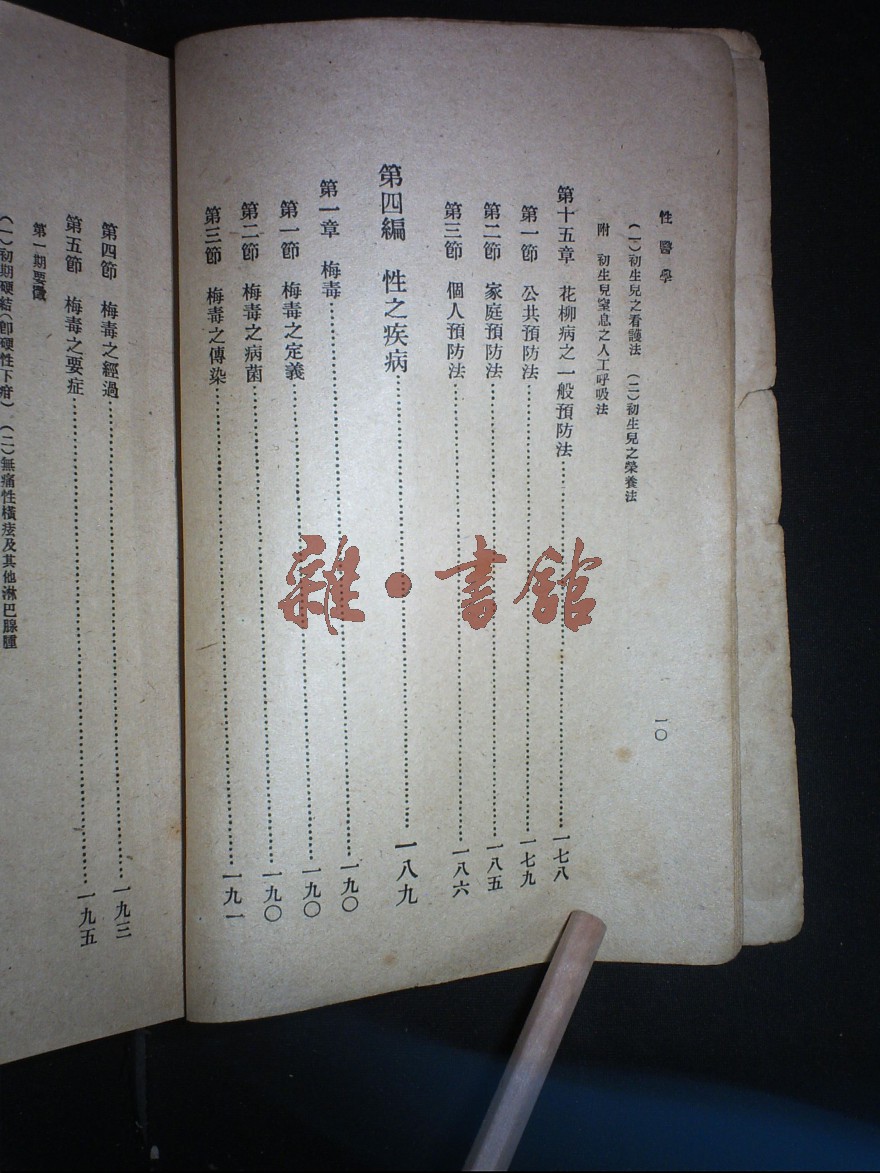 性醫學
(一)初生兒之看護法 (二)初生兒之榮養法
附 初生兒窒息之人工呼吸法
第十五章 花柳病之一般預防法……………………一七八
第一節 公共預防法……………………一七九
第二節 家庭預防法……………………一八五
第三節 個人預防法……………………一八六
第四編 性之疾病……………………一八九
第一章 梅毒……………………一九〇
第一節 梅毒之定義……………………一九〇
第二節 梅毒之病菌……………………一九〇
第三節 梅毒之傳染……………………一九一
一〇
第四節 梅毒之經過……………………一九三
第五節 梅毒之要症……………………一九五
第一期要徵
(一)初期硬結(卽硬性下疳) (二)無痛性橫痃及其他淋巴腺腫
雜·書館